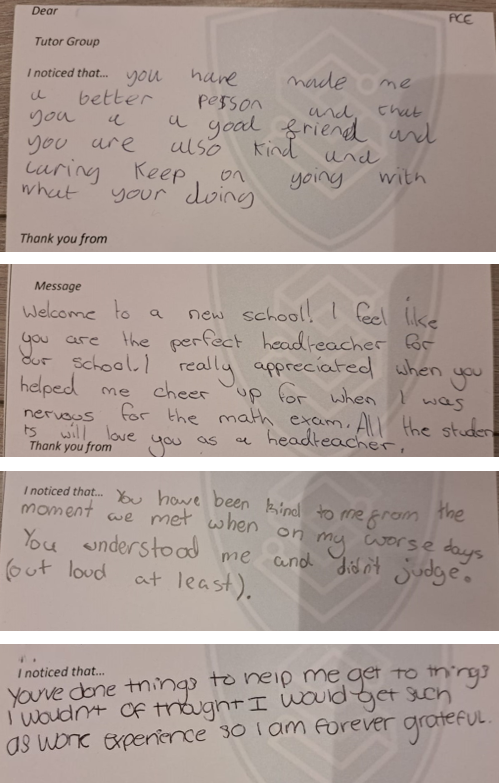 Dear
ACE
Tutor Group
I noticed that... you have made me
a better person and that
you a a good friend and
you are also kind and
caring Keep on going with
what your doing
Thank you from
Message
Welcome to a new school! I feel like
you are the perfect headteacher for
our school. I really appreciated when you
helped me cheer up for when I was
nervous for the math exam. All the studen
ts will love you as a headteacher.
Thank you from
I noticed that... You have been kind to me from the
moment we met when on my worse days
You understood me and didn't judge.
(out loud at least).
I noticed that...
You've done things to help me get to things
I wouldn't of thought I would get such
as work experience so I am forever grateful.